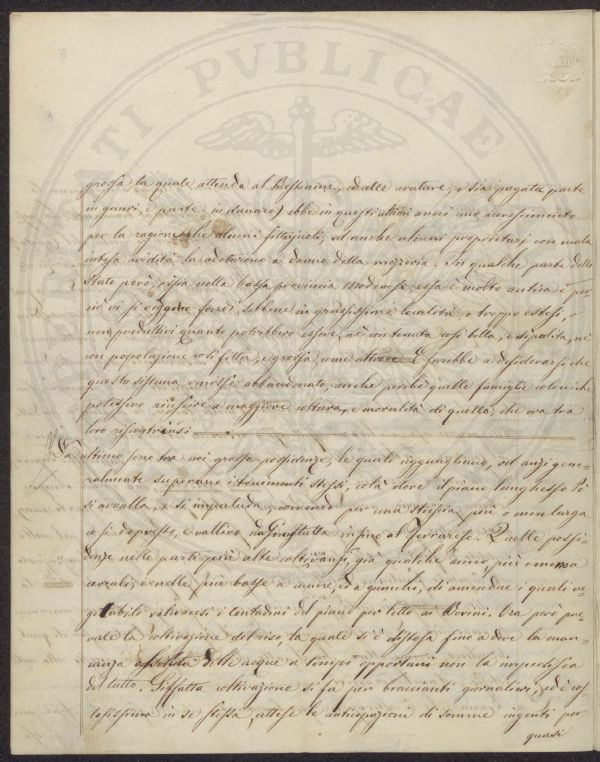 PVBLICAE
grossa la quale attenda al Bestiame, ed alle arature, e sia pagata parte
in generi, e parte in danaro) ebbe in questi ultimi anni uno accrescimento
per la ragione che alcuni fittajuoli, ed anche alcuni proprietarj con mala
intesa avidità la adottarono a danno della mezzeria. In qualche parte dello
Stato però, ossia nella bassa provincia Modenese essa è molto antica e per
nè vi si veggono fondi, sebbene in grassissime località, o troppo estesi, o
non produttivi quanto potrebbero essere, nè con tenuta così bella, e dipolita, nè
con popolazione così fitta, e grossa, come altrove. E sarebbe a desiderarsi che
questo sistema venisse abbandonato, anche perchè quelle famiglie coloniche
potessero riuscire a maggiore coltura, e moralità di quello, che ora tra
loro riscontrinsi
Da ultimo sono tra noi grosse possidenze, le quali agguagliano, od anzi gene-
ralmente superano i tenimenti stessi, colà dove il piano lunghesso Pò
si avvalla, e si impaluda, correndo per una striscia più o men larga
così depresso, e vallivo da Gualtulla infino al Ferrarese. Quelle possi-
denze nelle parti più alte coltivansi, già qualche anno, più o meno a
cereali, e nelle più basse a canne, ed a giunchi, di amendue i quali ve-
getabili valevansi i Contadini del piano per letto ai Bovini. Ora però pre-
vale la coltivazione del riso, la quale si è distesa fino a dove la man-
canza assoluta delle acque a tempi opportuni non la impedisca
del tutto. Siffatta coltivazione si fa per braccianti giornalieri, ed è cos-
tosissima in se stessa, attese le anticipazioni di somme ingenti per
quasi